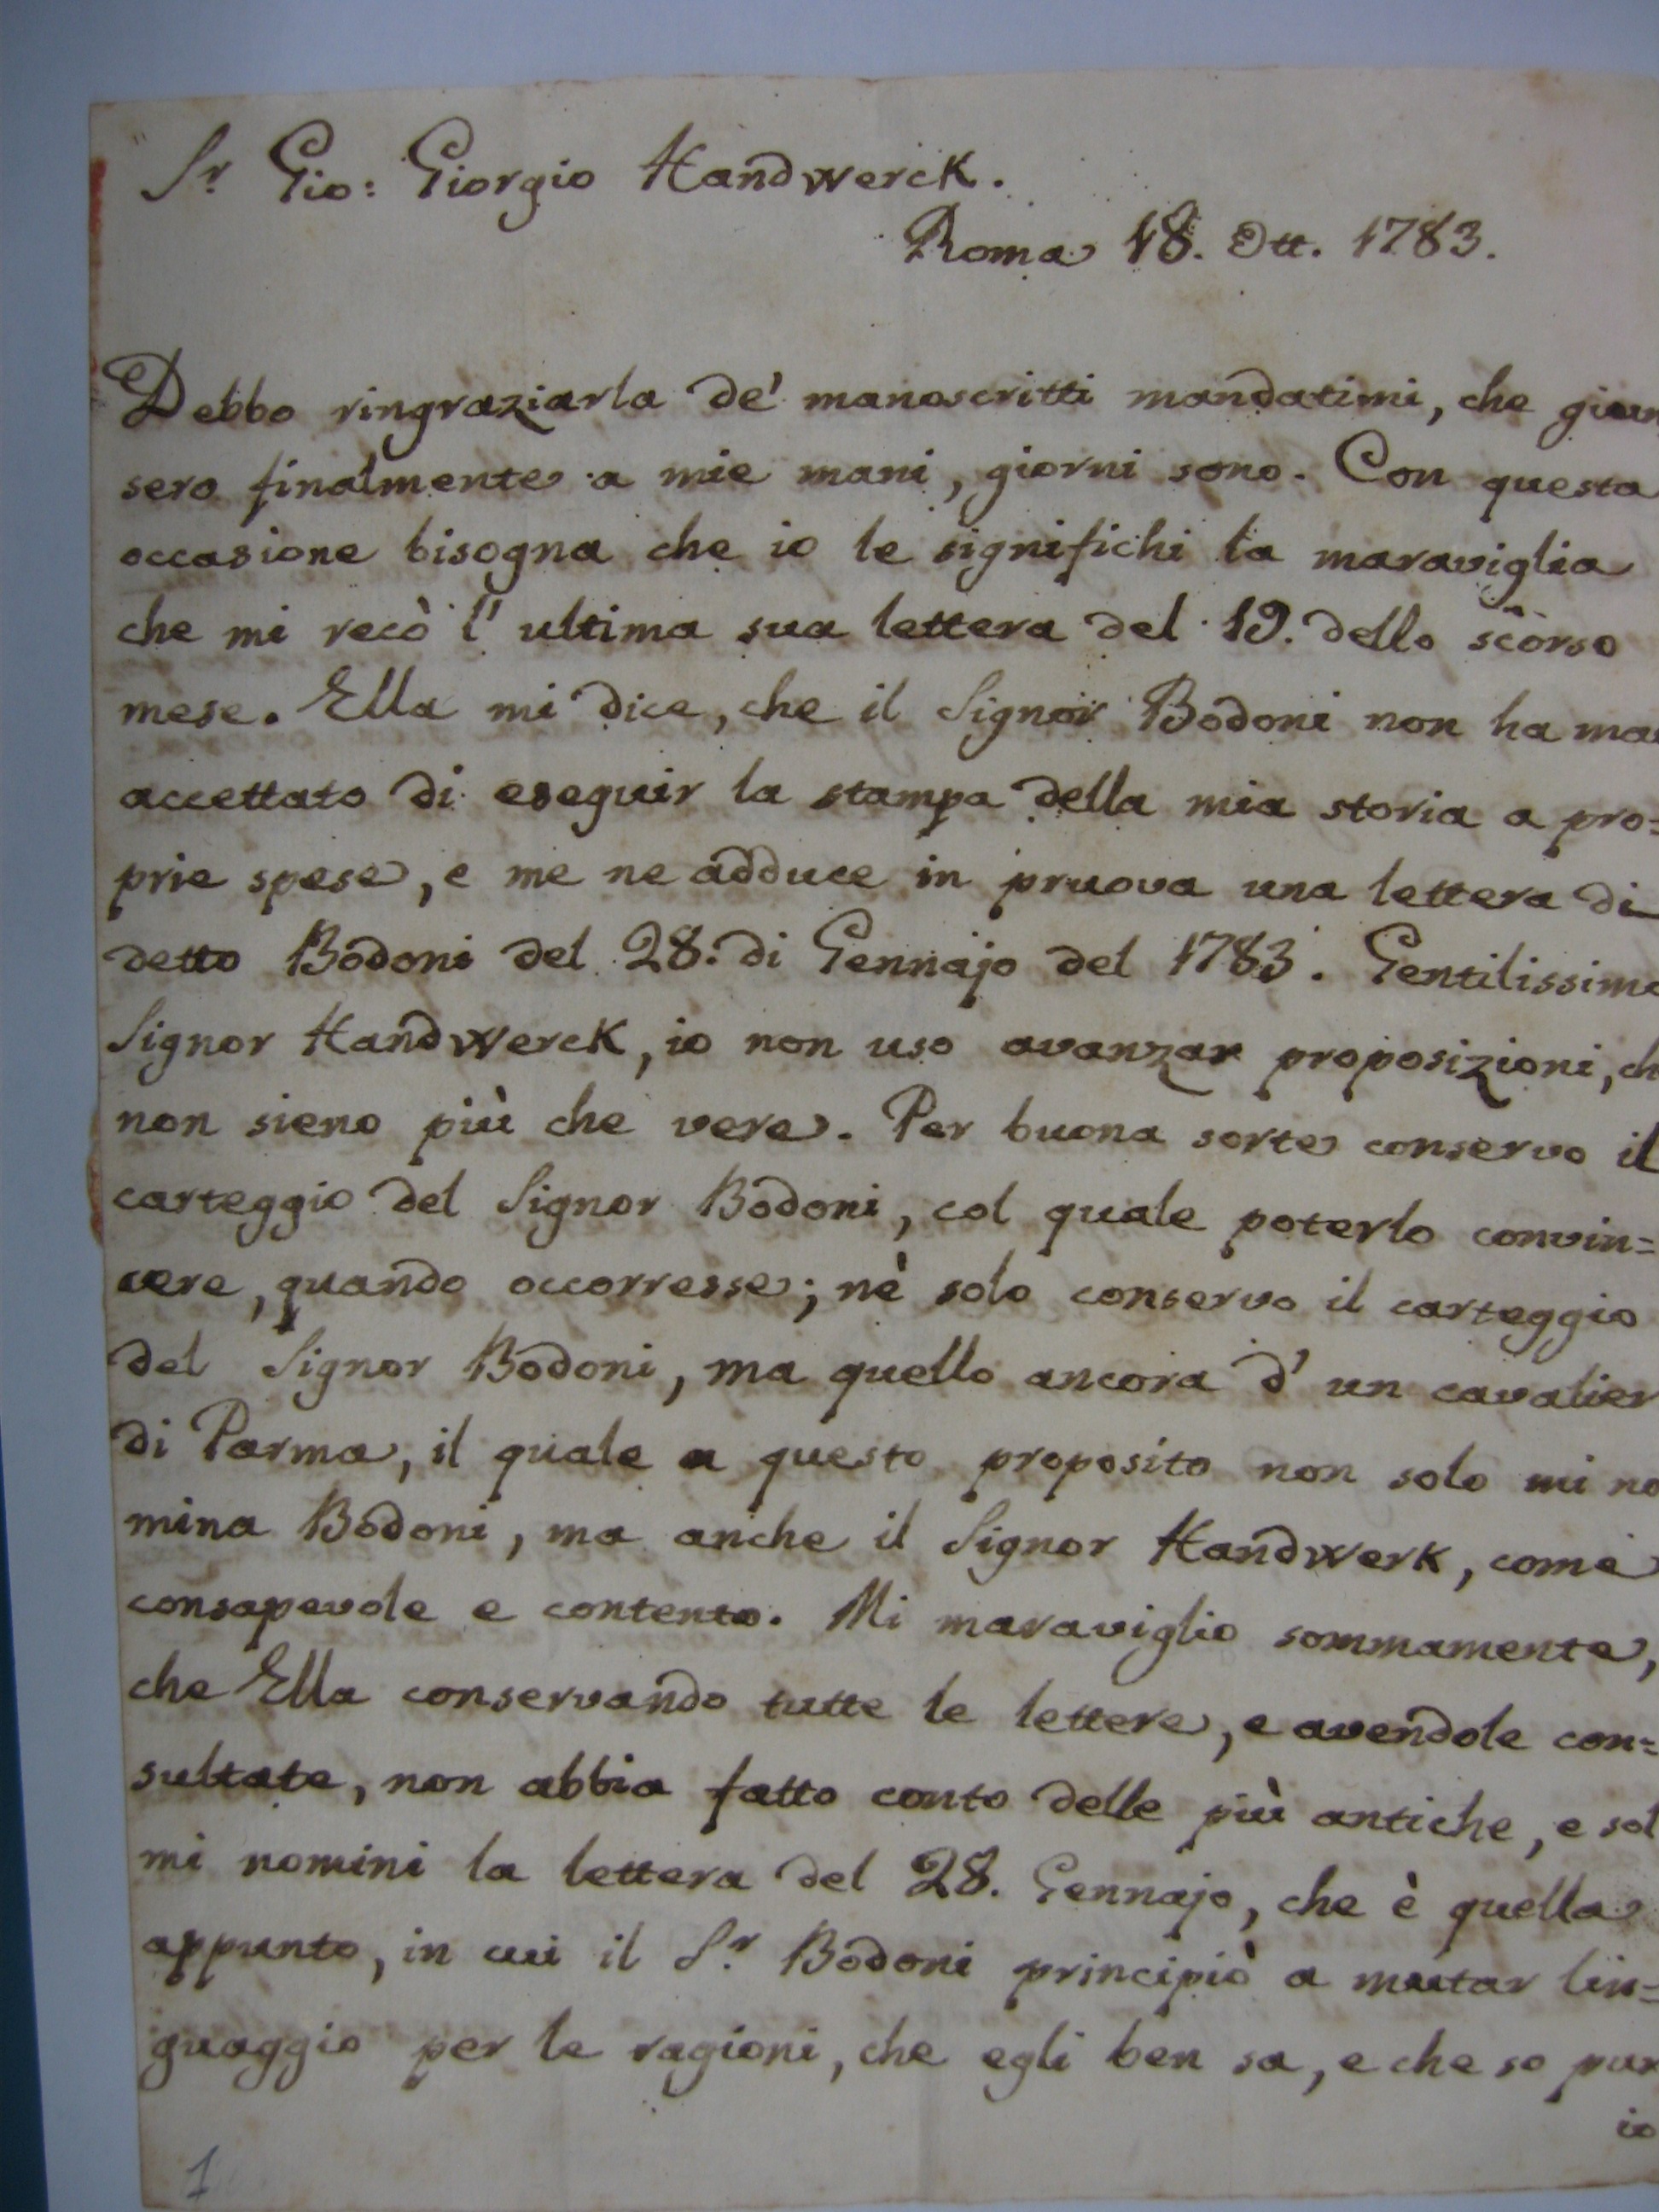 Sr. Gio: Giorgio Handwerck.
Roma 18. Ott. 1783.
Debbo ringraziarla de' manoscritti mandatimi, che giun
sero finalmente a mie mani, giorni sono. Con questa
occasione bisogna che io le significhi la maraviglia
che mi recò l' ultima sua lettera del 19. dello scorso
mese. Ella mi dice, che il Signor Bodoni non ha mai
accettato di eseguir la stampa della mia storia a pro=
prie spese, e me ne adduce in pruova una lettera di
detto Bodoni del 28. di Gennajo del 1783. Gentilissimo
Signor Handwerck, io non uso avanzar proposizioni, ch
non sieno più che vere. Per buona sorte conservo il
carteggio del Signor Bodoni, col quale poterlo convin=
cere, quando occorresse; nè solo conservo il carteggio
del Signor Bodoni, ma quello ancora d' un cavalier
di Parma, il quale a questo proposito non solo mi no
mina Bodoni, ma anche il Signor Handwerk, come
consapevole e contento. Mi maraviglio sommamente,
che Ella conservando tutte le lettere, e avendole con=
sultate, non abbia fatto conto delle più antiche, e sol
mi nomini la lettera del 28. Gennajo, che è quella
appunto, in cui il Sr. Bodoni principiò a mutar lin=
guaggio per le ragioni, che egli ben sa, e che so pur
io
1